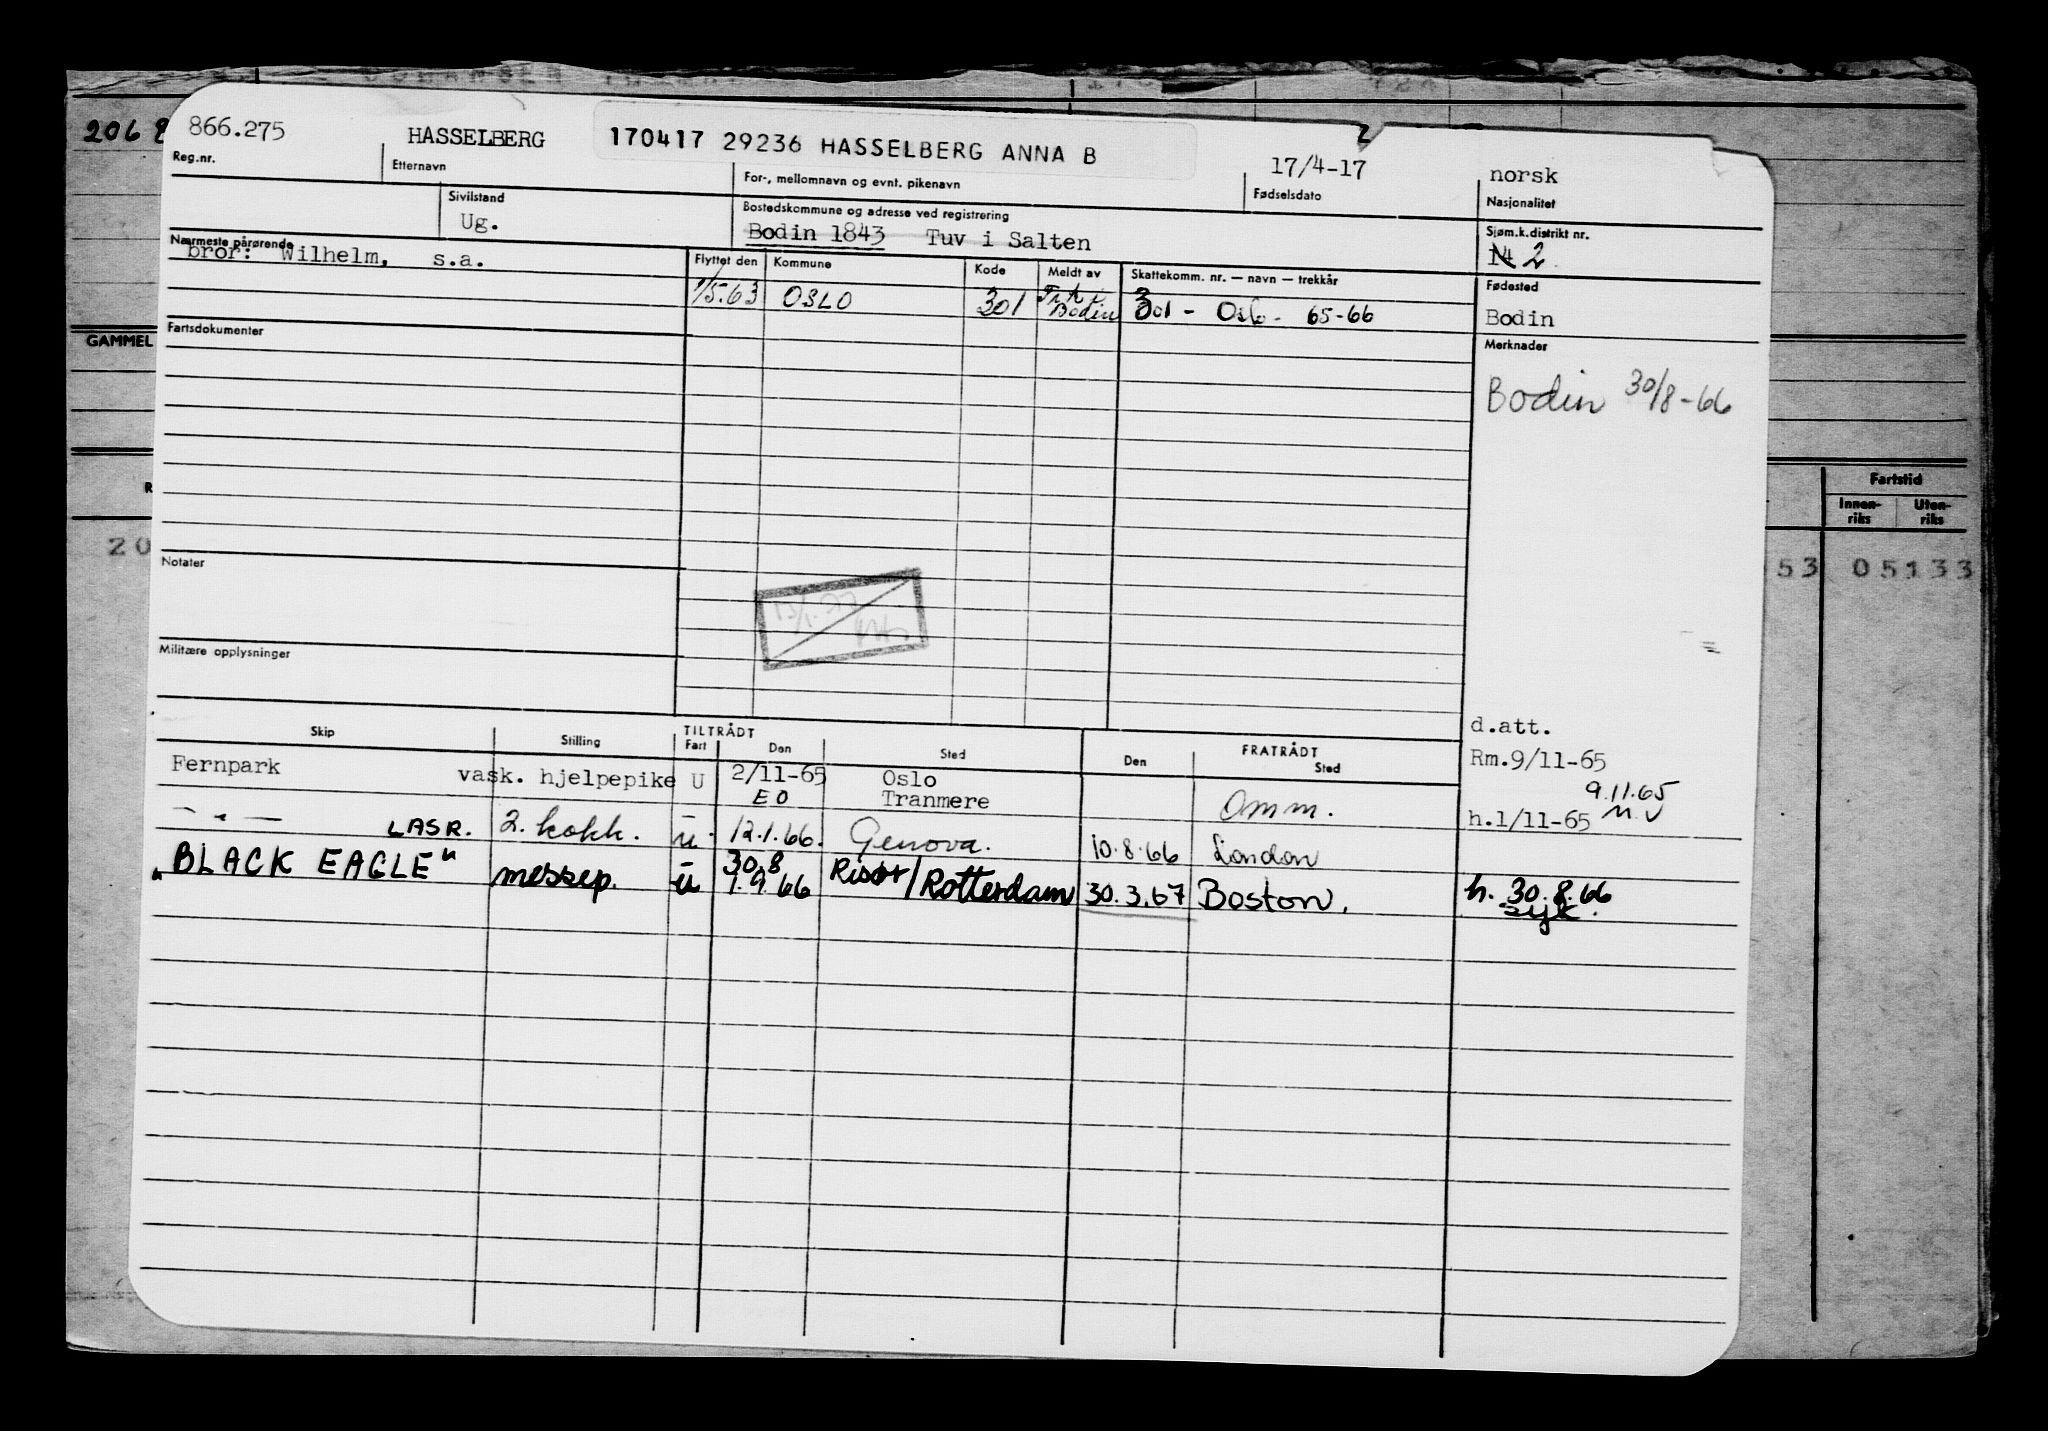 206 8
866.275 HASSELBERG 170417 29236 HASSELBERG ANNA B 17/4-17 norsk
Reg.nr. Etternavn For-, mellomnavn og evnt. pikenavn Fødselsdato Nasjonalitet
Sivilstand Bostedskommune og adresse ved registrering Sjøm.k.distrikt nr.
Ug. Bodin 1843 Tuv i Salten 2
Nærmeste pårørende Flyttet den Kommune Kode Meldt av Skattekomm. nr. — navn — trekkår Fødested
bror: Wilhelm, s.a. 1/5.63 OSLO 301 Bodin 301 - Oslo - 65-66 Bodin
Fartsdokumenter Merknader
GAMMEL
Bodin 30/8-66
Fartstid
Innen-riks Uten-riks
20 53 05133
Notater
Militære opplysninger
d.att.
Skip Stilling TILTRÅDT Fart Den Sted Den FRATRÅDT Sted
Fernpark vask. hjelpepike U 2/11-65 Oslo Rm.9/11-65
EO Tranmere Omm. 9.11.65
h.1/11-65 M.V
— " — LASR. 2. kokk. u 12.1.66. Genova. 10.8.66 London
"BLACK EAGLE" messep. u 30.8 1.9.66 Risør/Rotterdam 30.3.67 Boston. h. 30.8.66
syk.